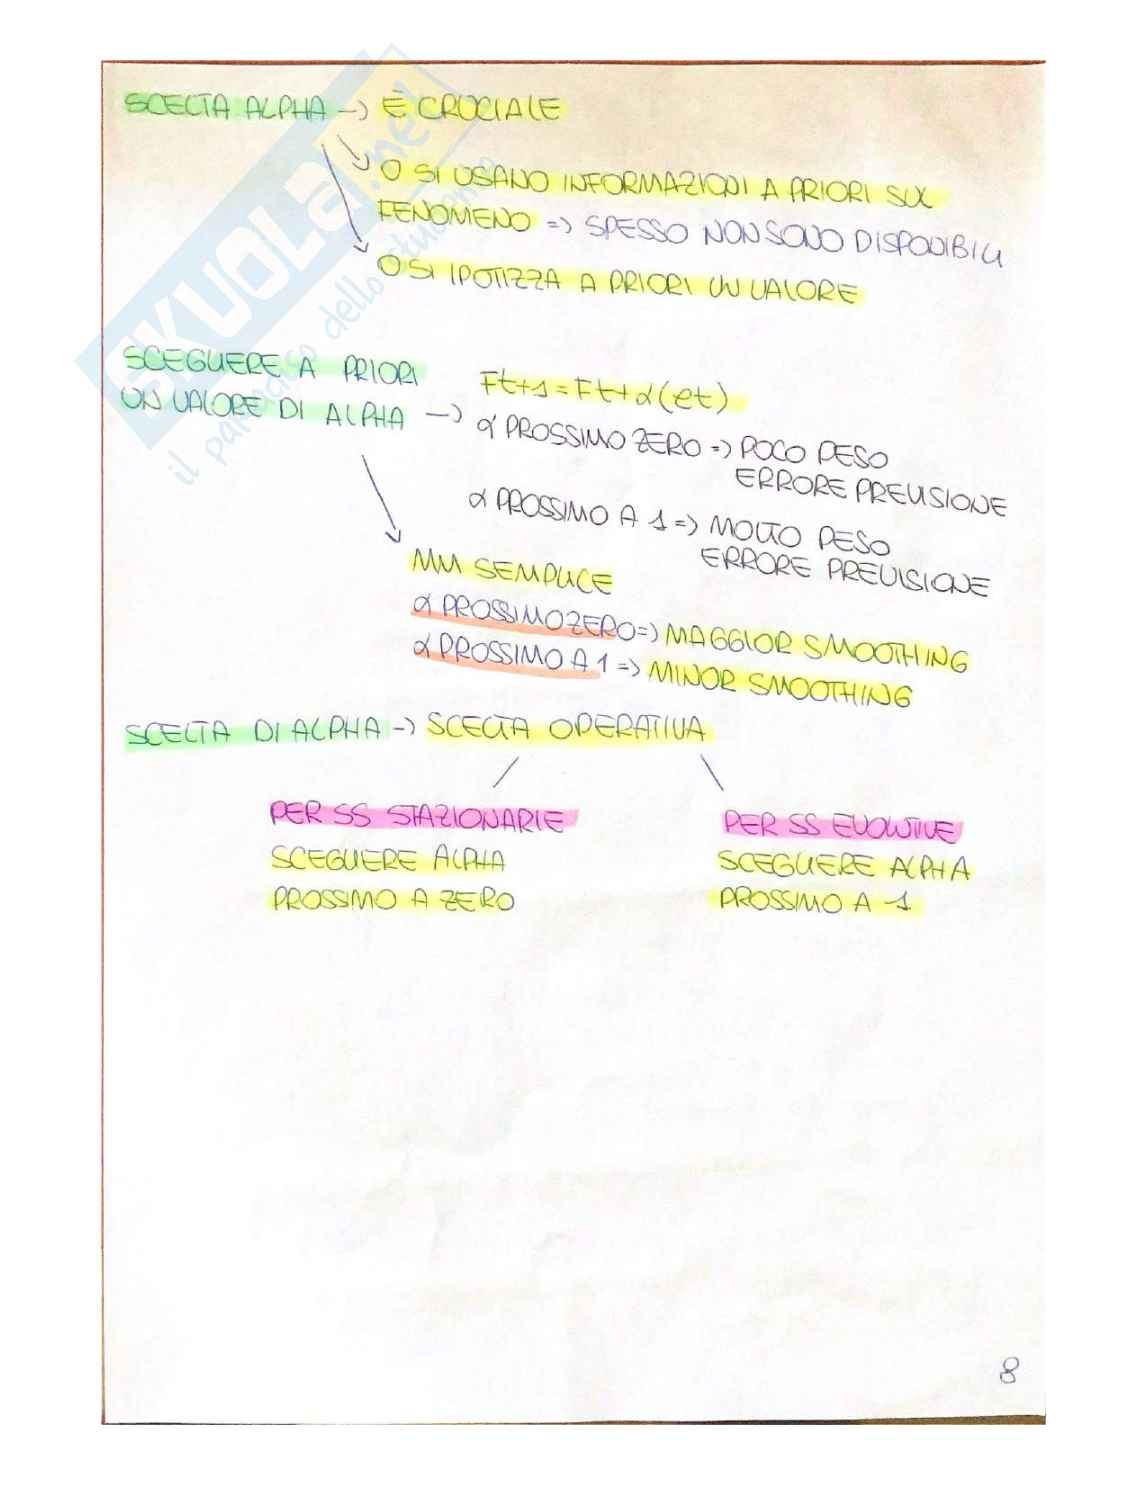 SCELTA ALPHA -> È CRUCIALE
O SI USANO INFORMAZIONI A PRIORI SUL
FENOMENO => SPESSO NON SONO DISPONIBILI
O SI IPOTIZZA A PRIORI UN VALORE
SCEGLIERE A PRIORI
UN VALORE DI ALPHA ->
Ft+1 = Ft + α(et)
α PROSSIMO ZERO => POCO PESO
ERRORE PREVISIONE
α PROSSIMO A 1 => MOLTO PESO
ERRORE PREVISIONE
MM SEMPLICE
α PROSSIMO ZERO => MAGGIOR SMOOTHING
α PROSSIMO A 1 => MINOR SMOOTHING
SCELTA DI ALPHA -> SCELTA OPERATIVA
PER SS STAZIONARIE
SCEGLIERE ALPHA
PROSSIMO A ZERO
PER SS EVOLUTIVE
SCEGLIERE ALPHA
PROSSIMO A 1
8
SKUOLA.net
il paradiso dello studente